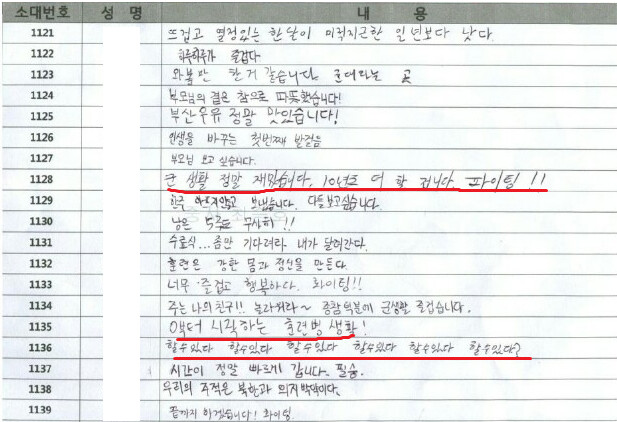 소대번호 성 명 내 용
1121 뜨겁고 열정있는 한달이 미적지근한 일년보다 낫다
1122 하루하루가 즐겁다
1123 와볼만 한거 같습니다 군대라는 곳
1124 부모님의 곁은 참으로 따뜻했습니다!
1125 부산우유 정말 맛있습니다!
1126 인생을 바꾸는 첫번째 발걸음
1127 부모님 보고 싶습니다.
1128 군 생활 정말 재밌습니다. 10년도 더 할 겁니다. 파이팅 !!
1129 한주 보냈습니다. 다들보고싶습니다.
1130 남은 5주도 무사히 !!
1131 수료식... 좀만 기다려라 내가 달려간다.
1132 훈련은 강한 몸과 정신을 만든다.
1133 너무 즐겁고 행복하다. 화이팅!!
1134 주는 나의친구!! 놀라워라~ 덕분에 군생활 즐겁습니다.
1135 0부터 시작하는 훈련병 생활!
1136 할수있다 할수있다 할수있다 할수있다 할수있다 할수있다?
1137 시간이 정말 빠르게 갑니다. 필승.
1138 우리의 주적은 북한과 의지박약이다.
1139 끝까지 하겠습니다! 화이팅